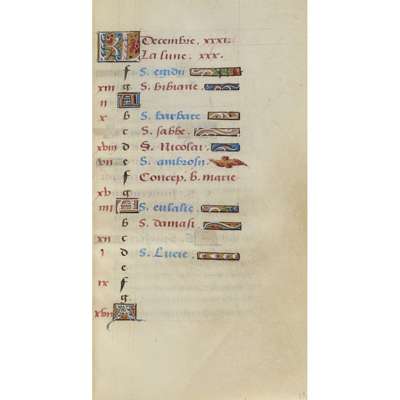 KL Decembre. xxxi.
La lune. xxx.
f S. egidii
xiii g S. bibiane.
ii A
x b S. barbare
c S. sabbe.
xviii d S. Nicolai.
vii e S. ambrosii.
f Concep. b. marie
xv g
iiii A S. eulalie
b S. damasi.
xii c
i d S. Lucie.
e
ix f
g
xvii A